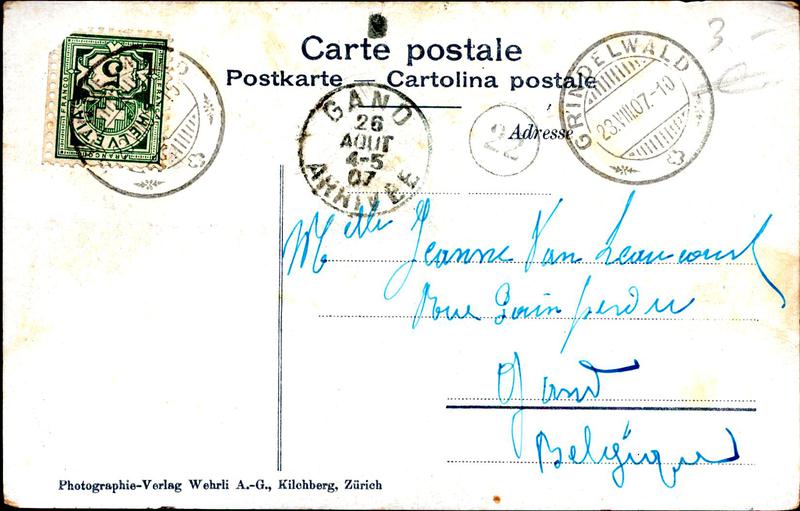 Carte postale
Postkarte — Cartolina postale
HELVETIA
5
FRANCO
GAND
26
AOUT
4-5
07
ARRIVEE
22
Adresse
GRINDELWALD
23.VIII.07.-10
3 -
Melle Jeanne Van
Rue Pain perdu
Gand
Belgique
Photographie-Verlag Wehrli A.-G., Kilchberg, Zürich